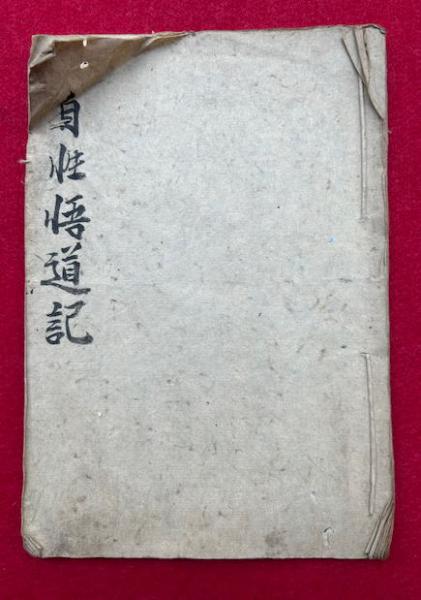 自性悟道記